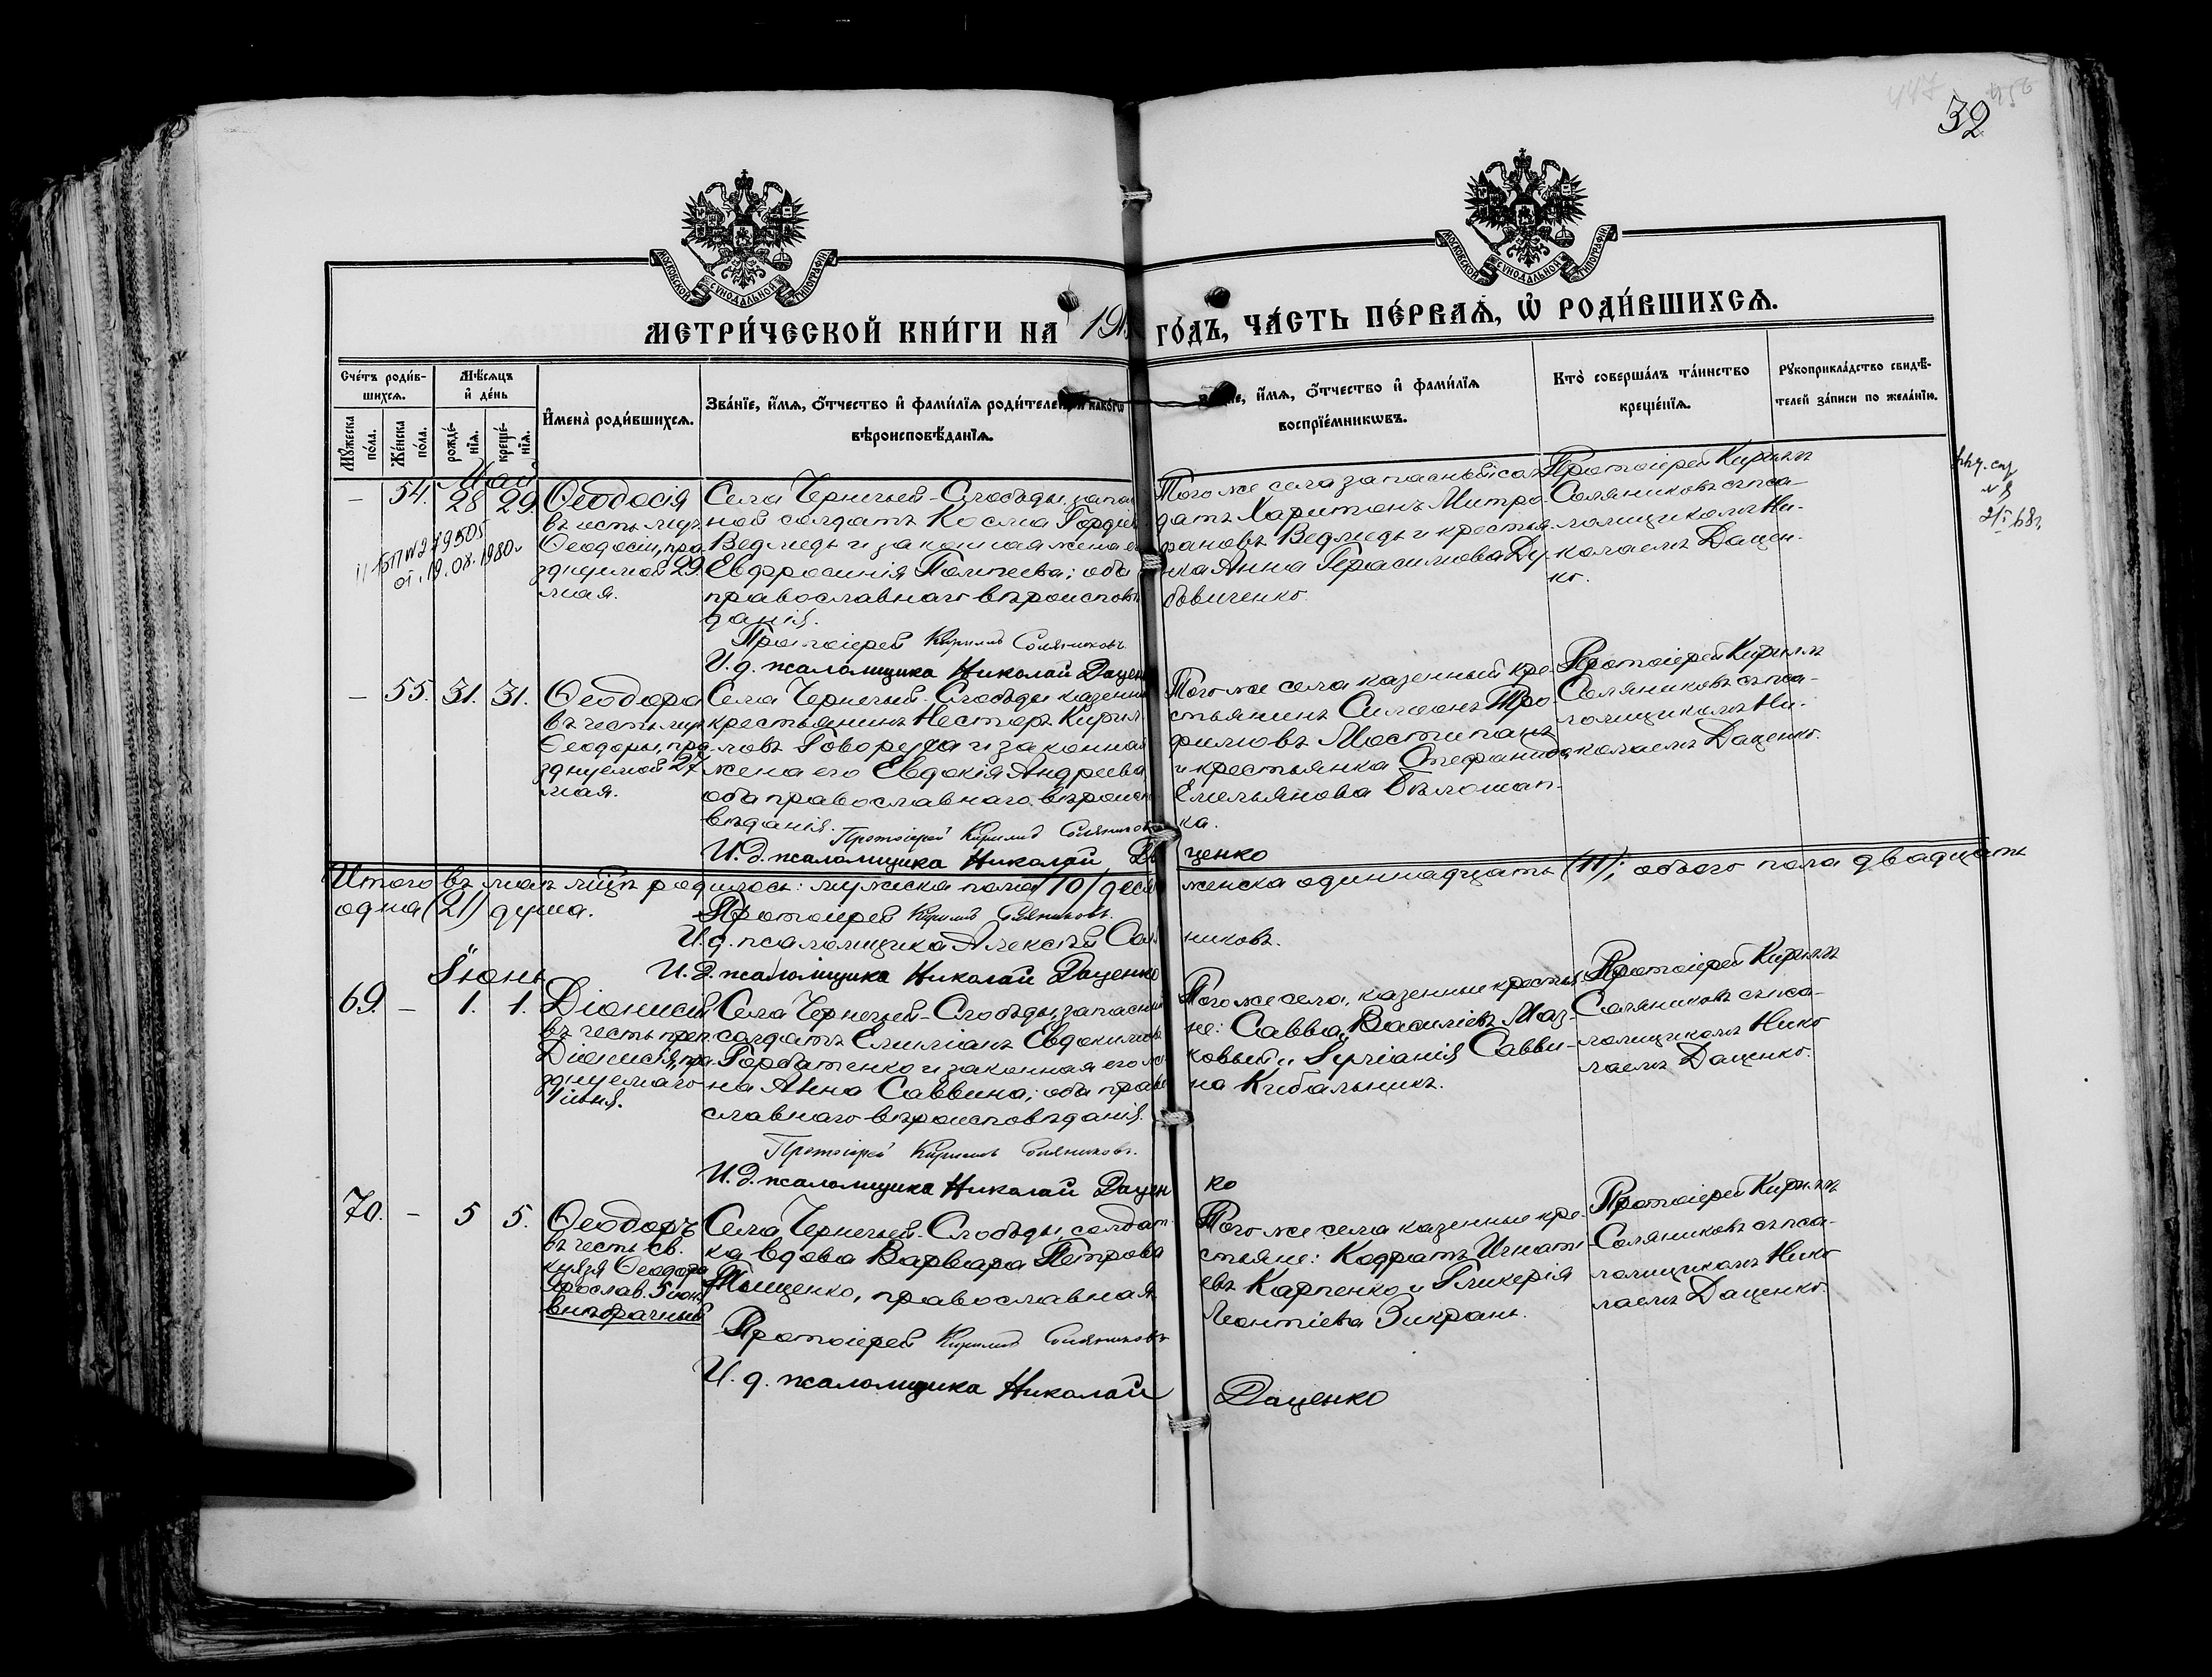 32
МОСКОВСКОЙ СѴНОДАЛЬНОЙ ТИПОГРАФІИ
МОСКОВСКОЙ СѴНОДАЛЬНОЙ ТИПОГРАФІИ
МЕТРИ́ЧЕСКОЙ КНИ́ГИ НА 19 ГО́ДЪ, ЧА́СТЬ ПЕ́РВАѦ, Ѡ҆ РОДИ́ВШИХСѦ.
Сче́тъ роди́в-
шихсѧ.
Мꙋ́жеска по́ла.
Же́нска по́ла.
Мѣ́сяцъ и҆ де́нь
рожде́-нїѧ.
креще́-нїѧ.
И҆мена̀ роди́вшихсѧ.
Зва́нїе, и҆́мѧ, ѻ҆́тчество и҆ фами́лїѧ роди́телей, и҆ како́гѡ
вѣроисповѣ́данїѧ.
и҆́мѧ, ѻ҆́тчество и҆ фами́лїѧ
воспрїе́мникѡвъ.
Кто̀ соверша́лъ та́инство
креще́нїѧ.
Рꙋкоприкла́дство свидѣ́-
телей за́писи по жела́нїю.
Май
— 54. 28 29.
Ѳеодосія
въ честь муч.
Ѳеодосіи, пра-
зднуемой 29
мая.
Села Чернечьей-Слободы, запас
ной солдатъ Косма Гордіев
Ведмедь и законная жена его
Евфросинія Пантеева; оба
православнаго вѣроисповѣ
данія.
Протоіерей Кириллъ Соляниковъ
И. д. псаломщика Николай Дацен
Того же села запасный сол-
датъ Харитонъ Митро-
фановъ Ведмедь и крестья-
нка Анна Герасимова Ду-
бовиченко.
Протоіерей Кириллъ
Соляниковъ съ пса-
ломщикомъ Ни-
колаемъ Дацен-
ко.
от. 19.08.1980г
— 55. 31. 31.
Ѳеодора
въ честь муч.
Ѳеодоры, пра-
зднуемой 27
мая.
Села Чернечьей-Слободы казенный
крестьянинъ Несторъ Кирил-
ловъ Говоруха и законная
жена его Евдокія Андреева,
оба православнаго вѣроиспо
вѣданія.
Протоіерей Кириллъ Соляниковъ
И. д. псаломщика Николай Да ценко
Того же села казенный кре-
стьянинъ Симеонъ Тро-
фимовъ Мостипанъ
и крестьянка Стефанида
Емельянова Бѣлошап-
ка.
Протоіерей Кириллъ
Соляниковъ съ пса-
ломщикомъ Ни-
колаемъ Даценко.
Итого въ маѣ мцѣ родилось: мужеска пола /10/ деся женска одиннадцать (11); обоего пола двадцать
одна (21) душа.
Протоіерей Кириллъ Соляниковъ.
И. д. псаломщика Алексѣй Соля никовъ.
И. д. псаломщика Николай Даценко
Іюнь
69. — 1. 1.
Діонисій
въ честь преп.
Діонисія, пра-
зднуемаго
1 іюня.
Села Чернечьей-Слободы, запасный
солдатъ Емиліанъ Евдокимов
Горбатенко и законная его же
на Анна Саввина; оба право
славнаго вѣроисповѣданія.
Протоіерей Кириллъ Соляниковъ.
И. д. псаломщика Николай Дацен ко
Того же села, казенные крестья-
не: Савва Василіевъ Маз-
ковый и Іуліанія Савви-
на Кибальникъ.
Протоіерей Кириллъ
Соляниковъ съ пса-
ломщикомъ Нико
лаемъ Даценко.
70. — 5 5.
Ѳеодоръ
въ честь св.
князя Ѳеодора
Ярослав. 5 іюн.
внѣбрачный
Села Чернечьей-Слободы, солдат-
ка вдова Варвара Петрова
Тищенко, православная
Протоіерей Кириллъ Соляниковъ
И. д. псаломщика Николай Даценко
Того же села казенные кре-
стьяне: Кодратъ Игнаті-
евъ Карпенко и Гликерія
Леонтіева Зикрань.
Протоіерей Кириллъ
Соляниковъ съ пса-
ломщикомъ Нико
лаемъ Даценко.